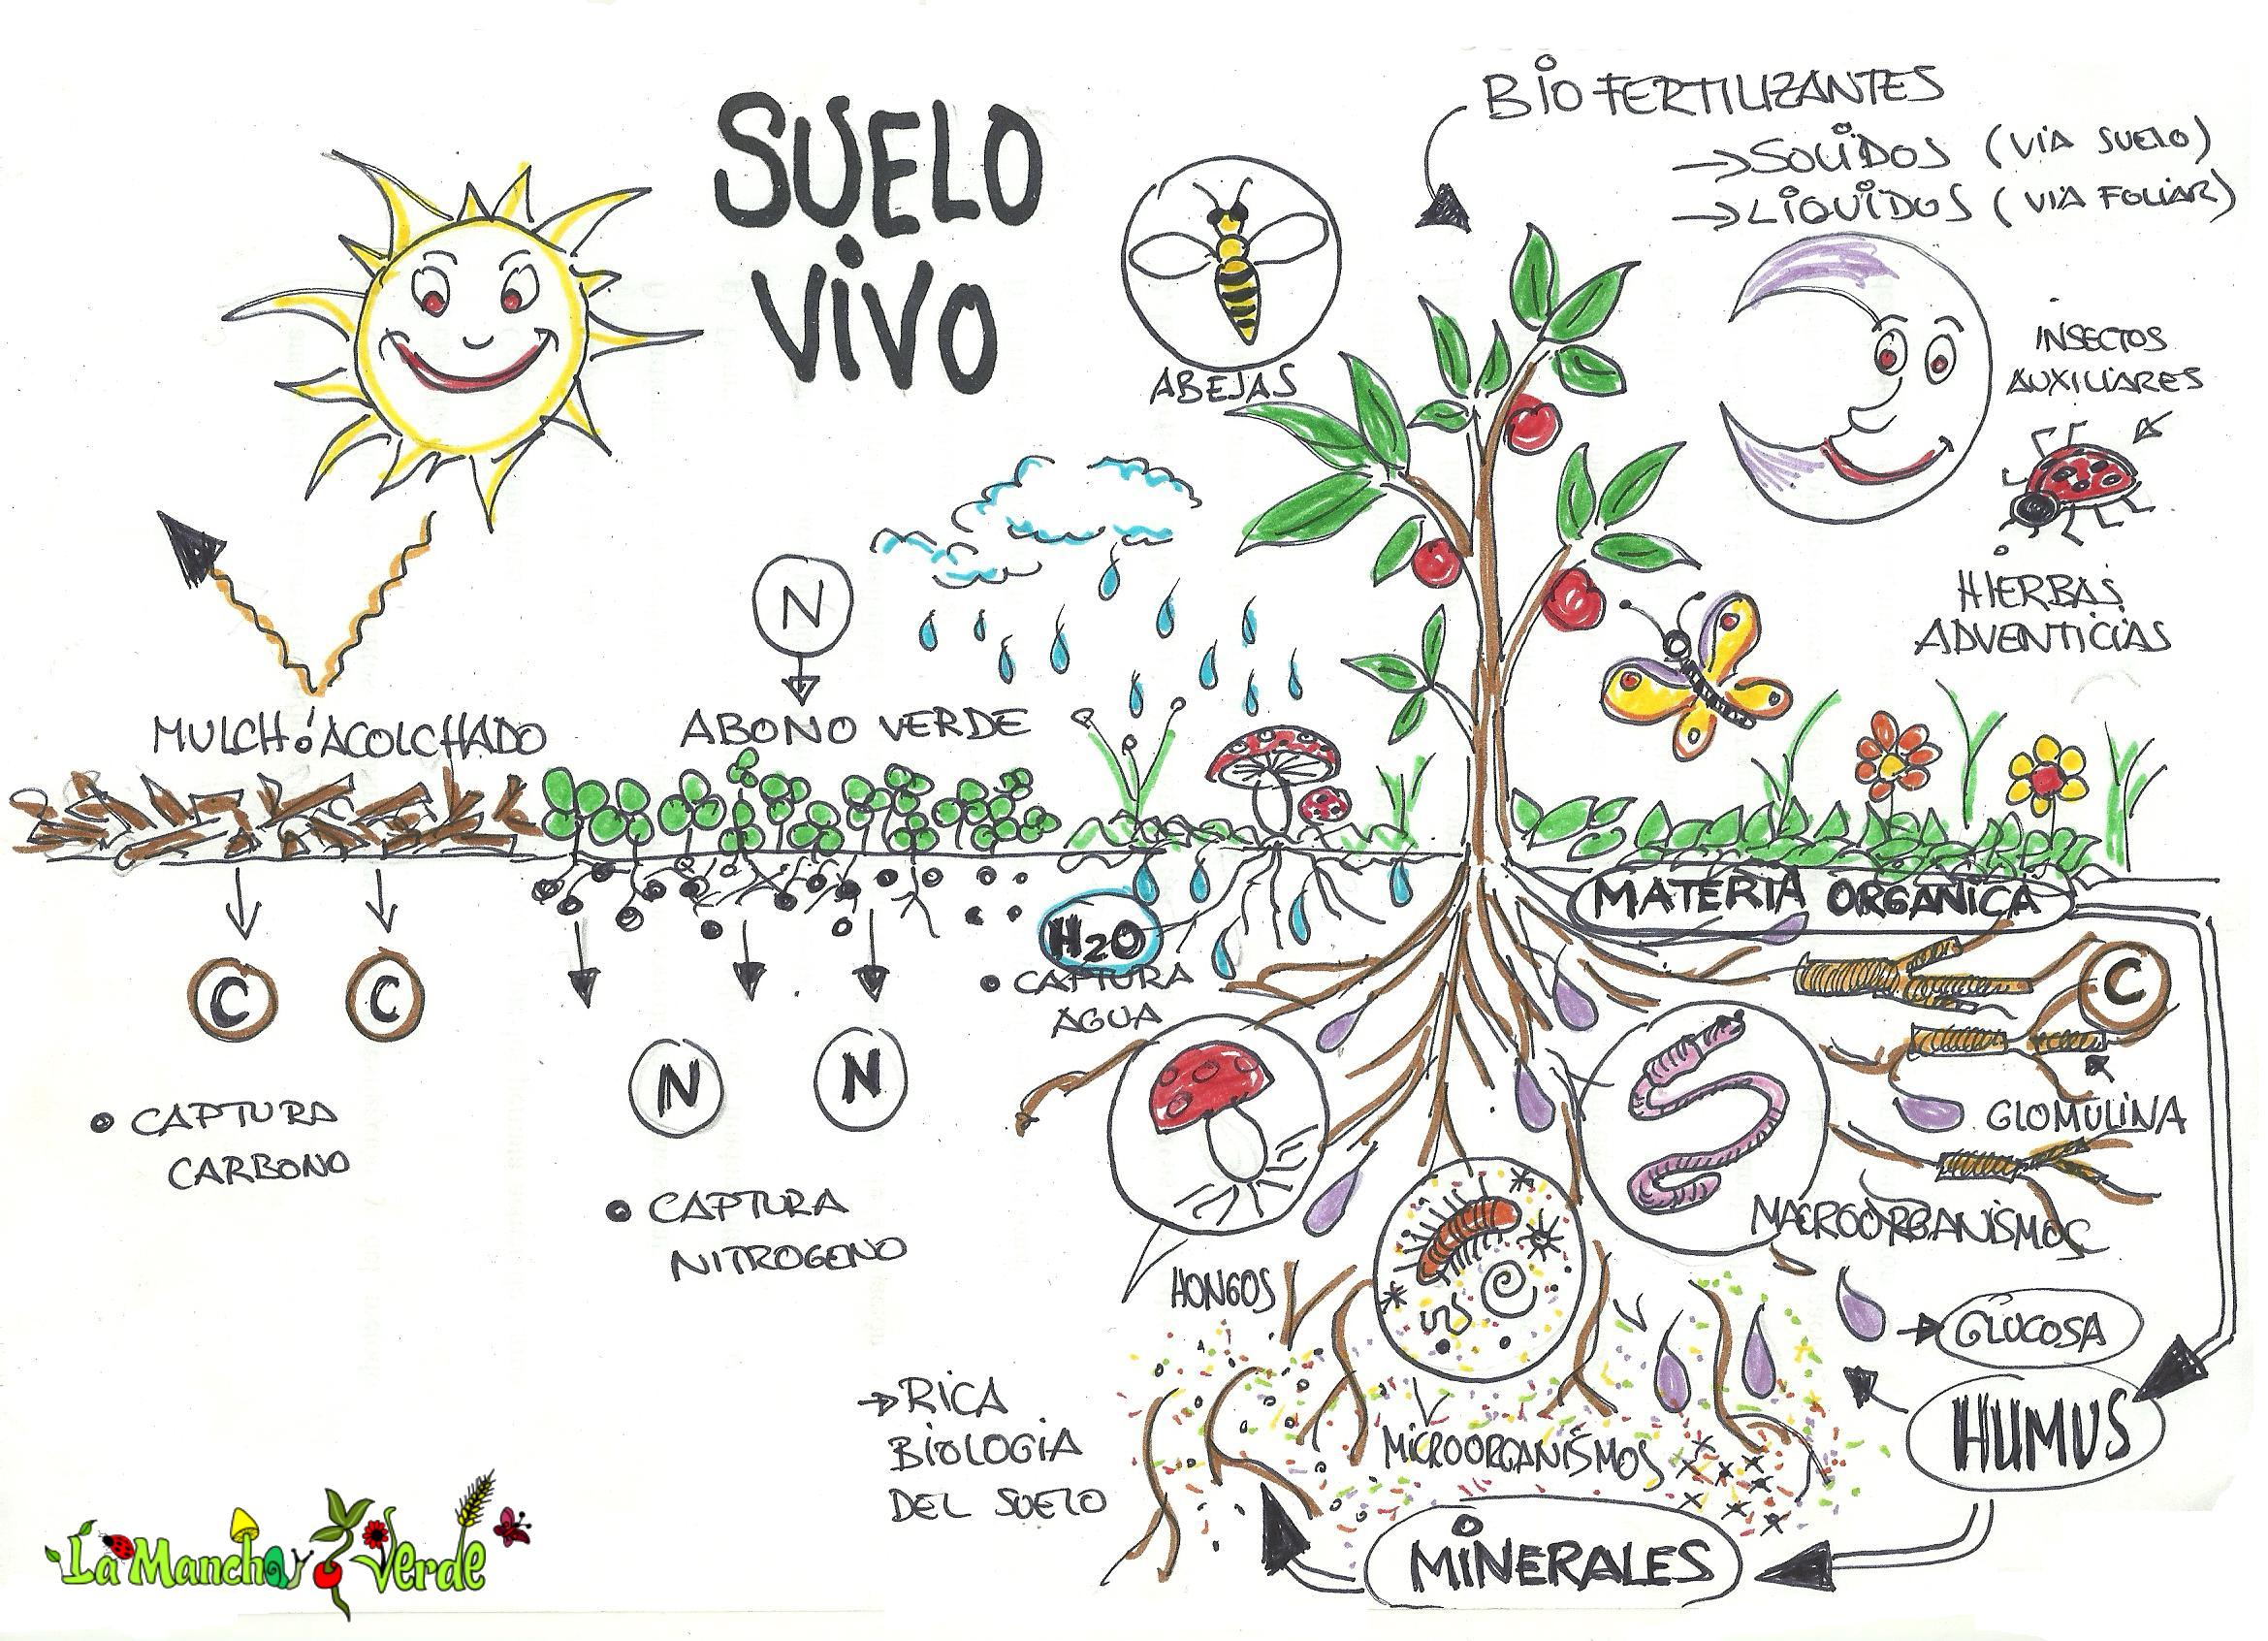 SUELO
VIVO
BIOFERTILIZANTES
→ SOLIDOS (VIA SUELO)
→ LIQUIDOS (VIA FOLIAR)
ABEJAS
INSECTOS
AUXILIARES
HIERBAS
ADVENTICIAS
N
MULCH o ACOLCHADO
ABONO VERDE
MATERIA ORGANICA
H2O
• CAPTURA
AGUA
C
C
C
N
N
• CAPTURA
CARBONO
• CAPTURA
NITROGENO
GLOMULINA
MACROORGANISMOS
HONGOS
GLUCOSA
→ RICA
BIOLOGIA
DEL SUELO
MICROORGANISMOS
HUMUS
MINERALES
La Mancha Verde